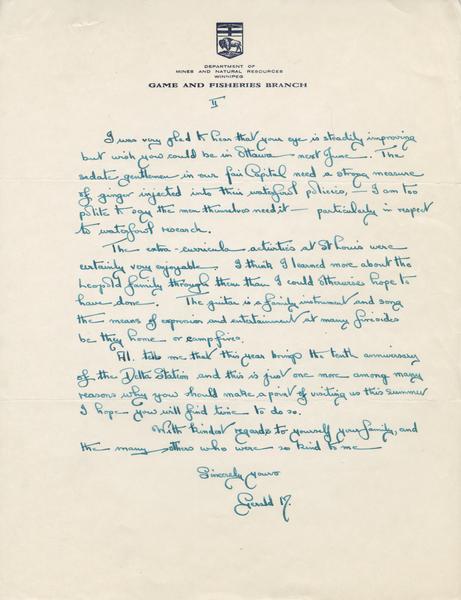 DEPARTMENT OF
MINES AND NATURAL RESOURCES
WINNIPEG
GAME AND FISHERIES BRANCH
II
I was very glad to hear that your eye is steadily improving
but wish you could be in Ottawa next June. The
sedate gentlemen in our fair Capital need a strong measure
of ginger injected into their waterfowl policies, — I am too
polite to say the men themselves need it — particularly in respect
to waterfowl research.
The extra-curricula activities at St Louis were
certainly very enjoyable. I think I learned more about the
Leopold family through them than I could otherwise hope to
have done. The guitar is a family instrument and song
the means of expression and entertainment at many firesides
be they home or campfires.
Al. tells me that this year brings the tenth anniversary
of the Delta Station and this is just one more among many
reasons why you should make a point of visiting us this summer
I hope you will find time to do so.
With kindest regards to yourself your family, and
the many others who were so kind to me
Sincerely yours
Gerald M.